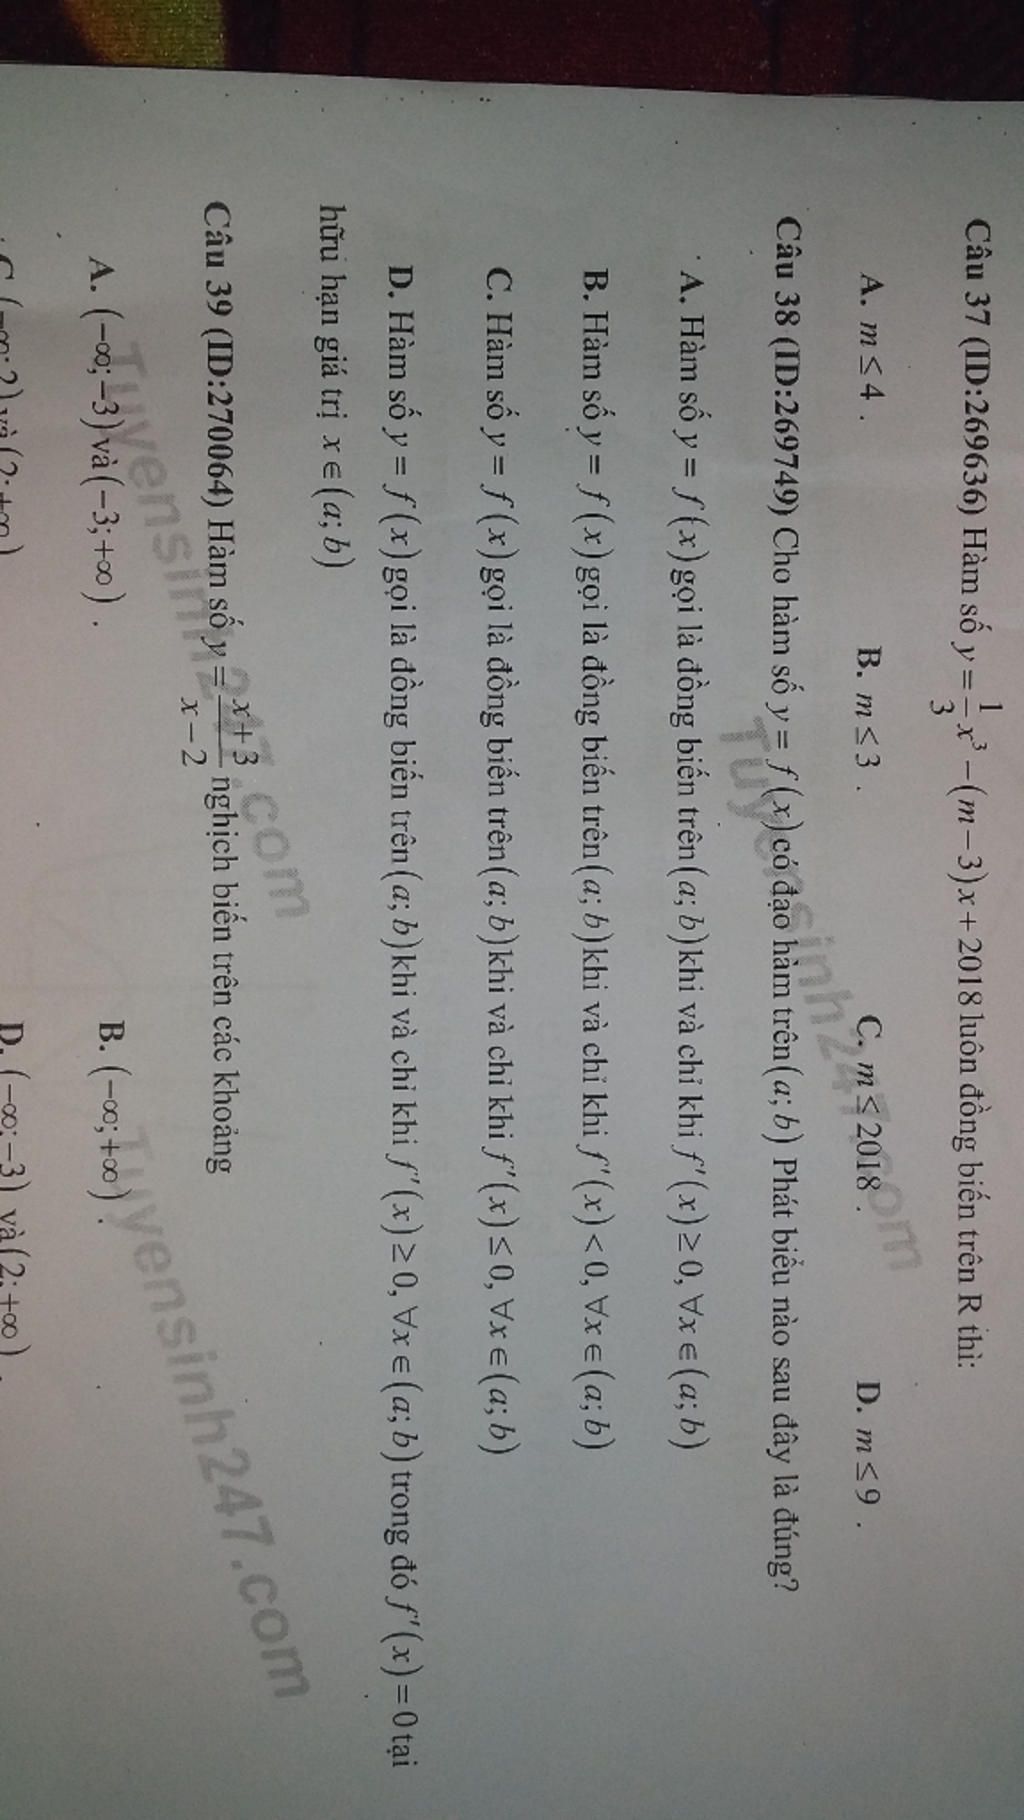 Câu 37 (ID:269636) Hàm số y = 1/3 x³ − (m − 3)x + 2018 luôn đồng biến trên R thì:
A. m ≤ 4 . B. m ≤ 3 . C. m ≤ 2018 . D. m ≤ 9 .
Câu 38 (ID:269749) Cho hàm số y = f(x) có đạo hàm trên (a; b) Phát biểu nào sau đây là đúng?
A. Hàm số y = f(x) gọi là đồng biến trên (a; b) khi và chỉ khi f'(x) ≥ 0, ∀x ∈ (a; b)
B. Hàm số y = f(x) gọi là đồng biến trên (a; b) khi và chỉ khi f'(x) < 0, ∀x ∈ (a; b)
C. Hàm số y = f(x) gọi là đồng biến trên (a; b) khi và chỉ khi f'(x) ≤ 0, ∀x ∈ (a; b)
D. Hàm số y = f(x) gọi là đồng biến trên (a; b) khi và chỉ khi f'(x) ≥ 0, ∀x ∈ (a; b) trong đó f'(x) = 0 tại
hữu hạn giá trị x ∈ (a; b)
Câu 39 (ID:270064) Hàm số y = (x + 3)/(x − 2) nghịch biến trên các khoảng
A. (−∞; −3) và (−3; +∞) . B. (−∞; +∞) .
C. (−∞; 2) và (2; +∞) D. (−∞; −3) và (2; +∞) .
Tuyensinh247.com
Tuyensinh247.com
Tuyensinh247.com